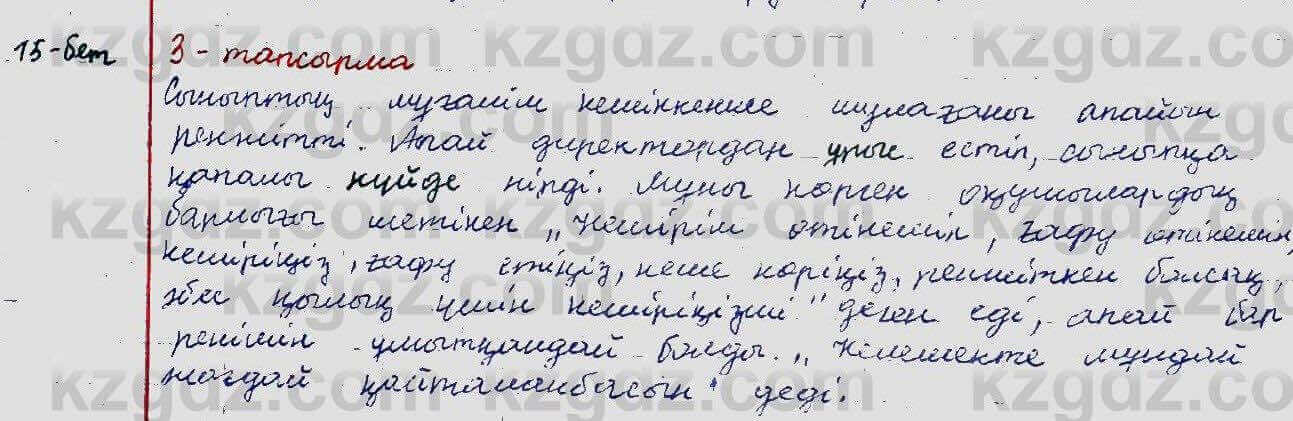 15-бет 3-тапсырма
Сыныптың мұғалім кешіккенше шулағаны апайын
ренжітті. Апай директордан ұрыс естіп, сыныпқа
қапалы күйде кірді. Мұны көрген оқушылардың
барлығы шетінен „Кешірім өтінемін, ғафу өтінемін,
кешіріңіз, ғафу етіңіз, кеше көріңіз, ренжіткен болсақ,
әбес қылық үшін кешіріңізші" деген еді, апай бар
ренішін ұмытқандай болды. „Келешекте мұндай
жағдай қайталанбасын" деді.